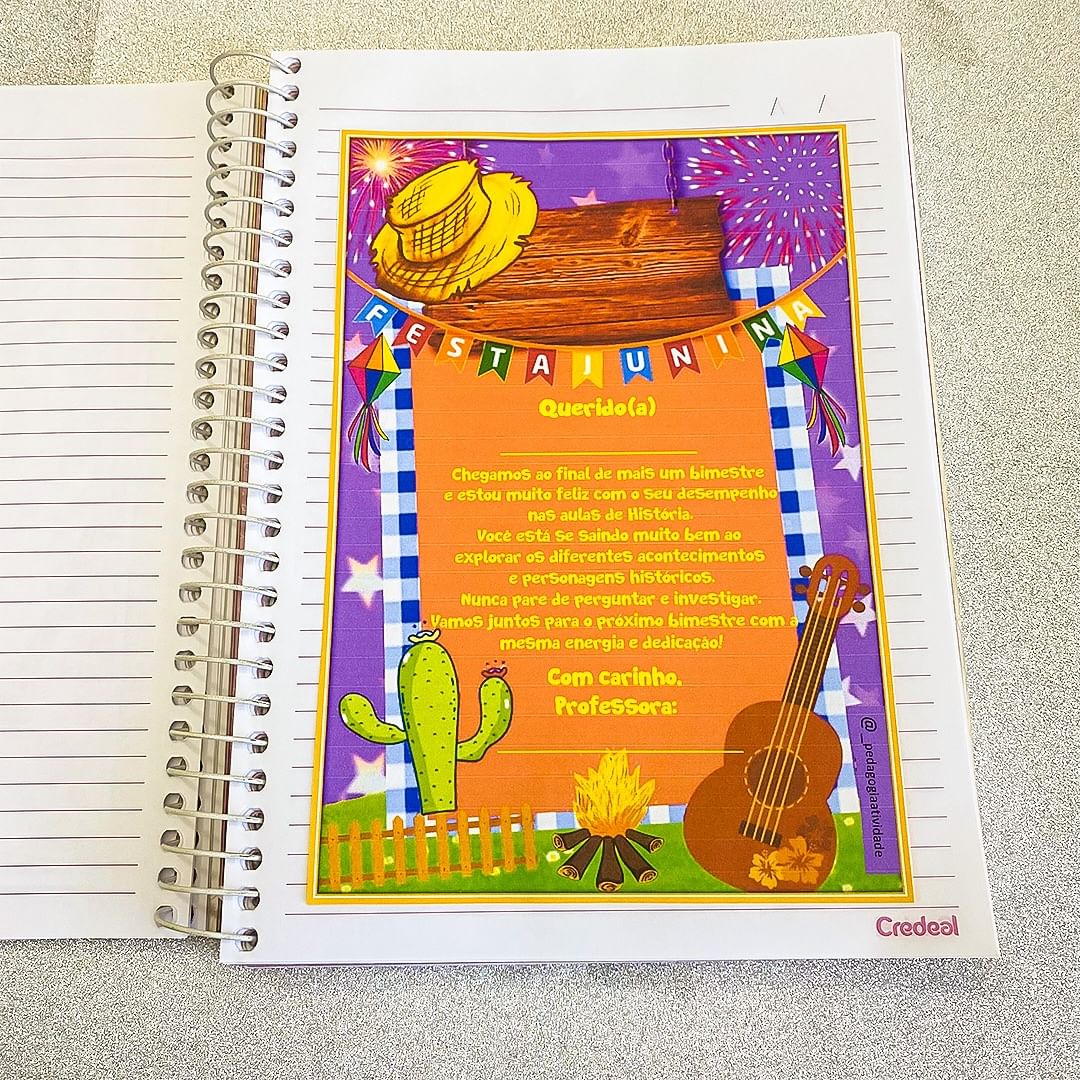 FESTA JUNINA
Querido(a)
Chegamos ao final de mais um bimestre
e estou muito feliz com o seu desempenho
nas aulas de História.
Você está se saindo muito bem ao
explorar os diferentes acontecimentos
e personagens históricos.
Nunca pare de perguntar e investigar.
Vamos juntos para o próximo bimestre com a
mesma energia e dedicação!
Com carinho,
Professora:
@_pedagogiaatividade
Credeal